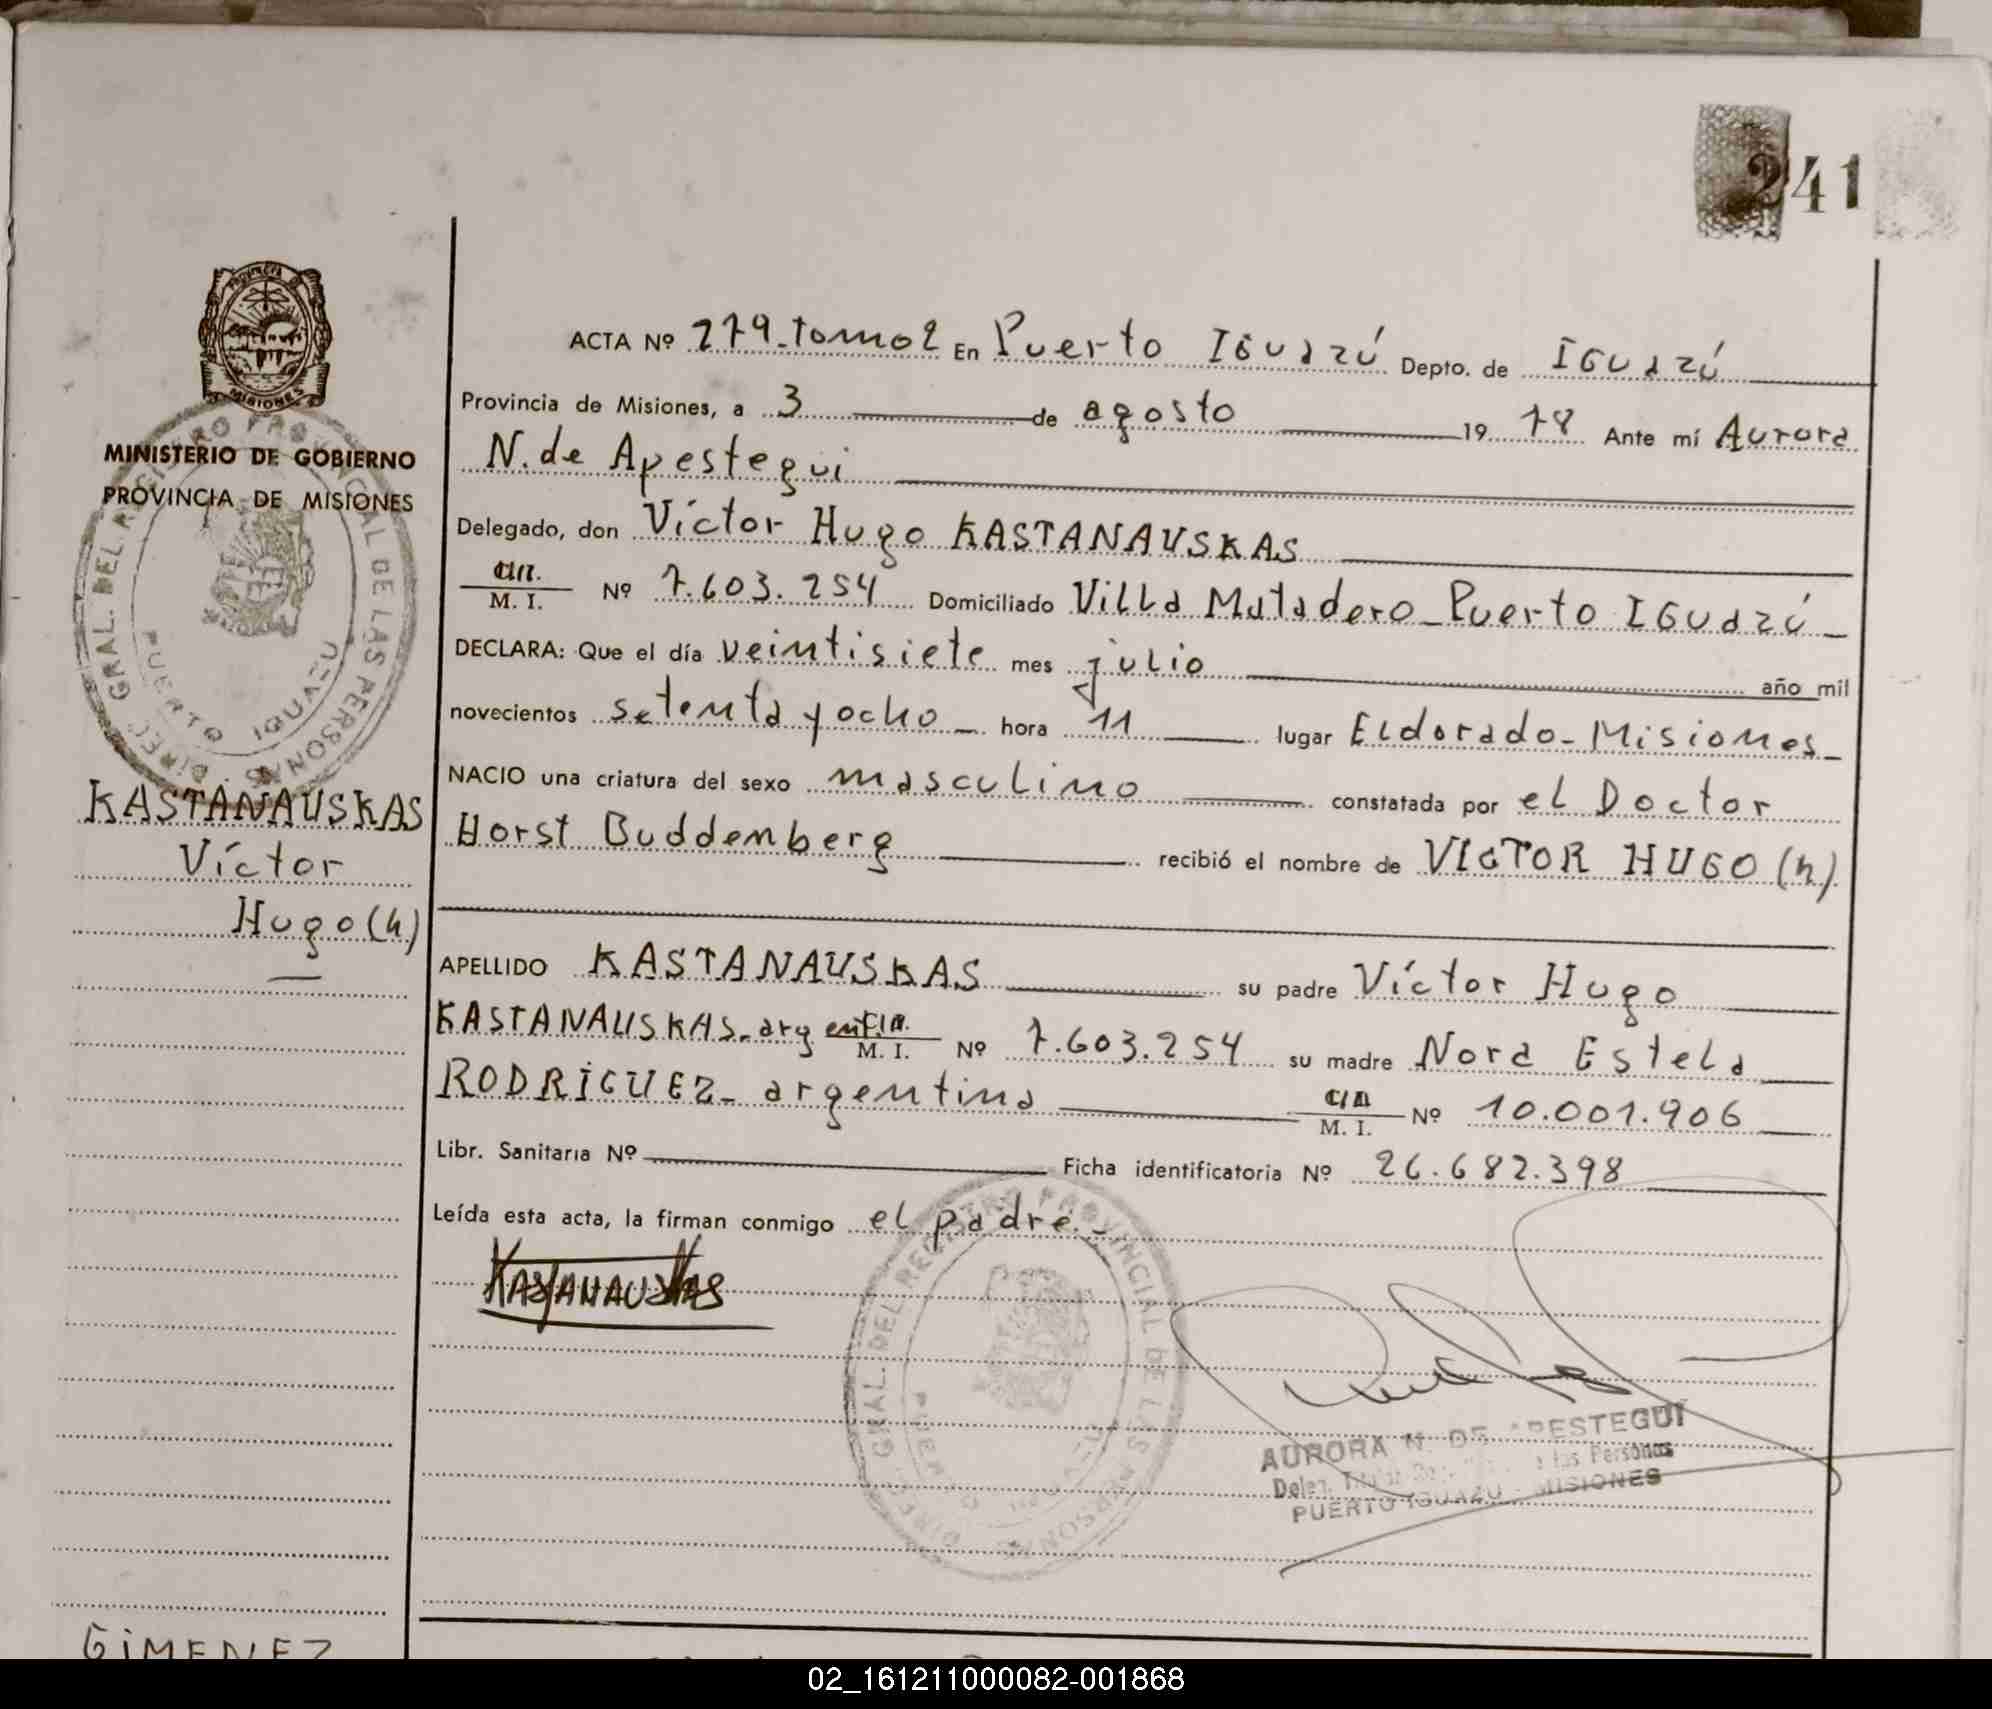 241
PROVINCIA
MISIONES
MINISTERIO DE GOBIERNO
PROVINCIA DE MISIONES
DIREC. GRAL. DEL REGISTRO PROVINCIAL DE LAS PERSONAS
PUERTO IGUAZU
KASTANAUSKAS
Víctor
Hugo (h)
ACTA Nº 279-Tomo 2 En Puerto IGuazú Depto. de IGuazú
Provincia de Misiones, a 3 de agosto 19 78 Ante mí Aurora
N. de Apestegui
Delegado, don Víctor Hugo KASTANAUSKAS
M. I. Nº 7.603.254 Domiciliado Villa Matadero - Puerto IGuazú -
DECLARA: Que el día veintisiete mes julio año mil
novecientos setenta y ocho - hora 11 lugar Eldorado - Misiones -
NACIO una criatura del sexo masculino constatada por el Doctor
Horst Buddemberg recibió el nombre de VICTOR HUGO (h)
APELLIDO KASTANAUSKAS su padre Víctor Hugo
KASTANAUSKAS - argent. M. I. Nº 7.603.254 su madre Nora Estela
RODRIGUEZ - argentina M. I. Nº 10.001.906
Libr. Sanitaria Nº Ficha identificatoria Nº 26.682.398
Leída esta acta, la firman conmigo el padre. -
KASTANAUSKAS
DIREC. GRAL. DEL REGISTRO PROVINCIAL DE LAS PERSONAS
PUERTO IGUAZU
AURORA N. DE APESTEGUI
las Personas
PUERTO IGUAZU - MISIONES
GIMENEZ
02_161211000082-001868